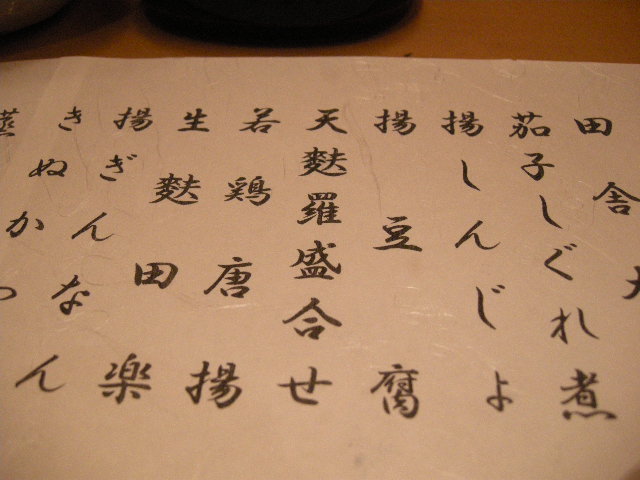 田舎
茄子しぐれ煮
揚しんじょ
揚豆腐
天麩羅盛合せ
若鶏唐揚
生麩田楽
揚ぎんなん
きぬかつ